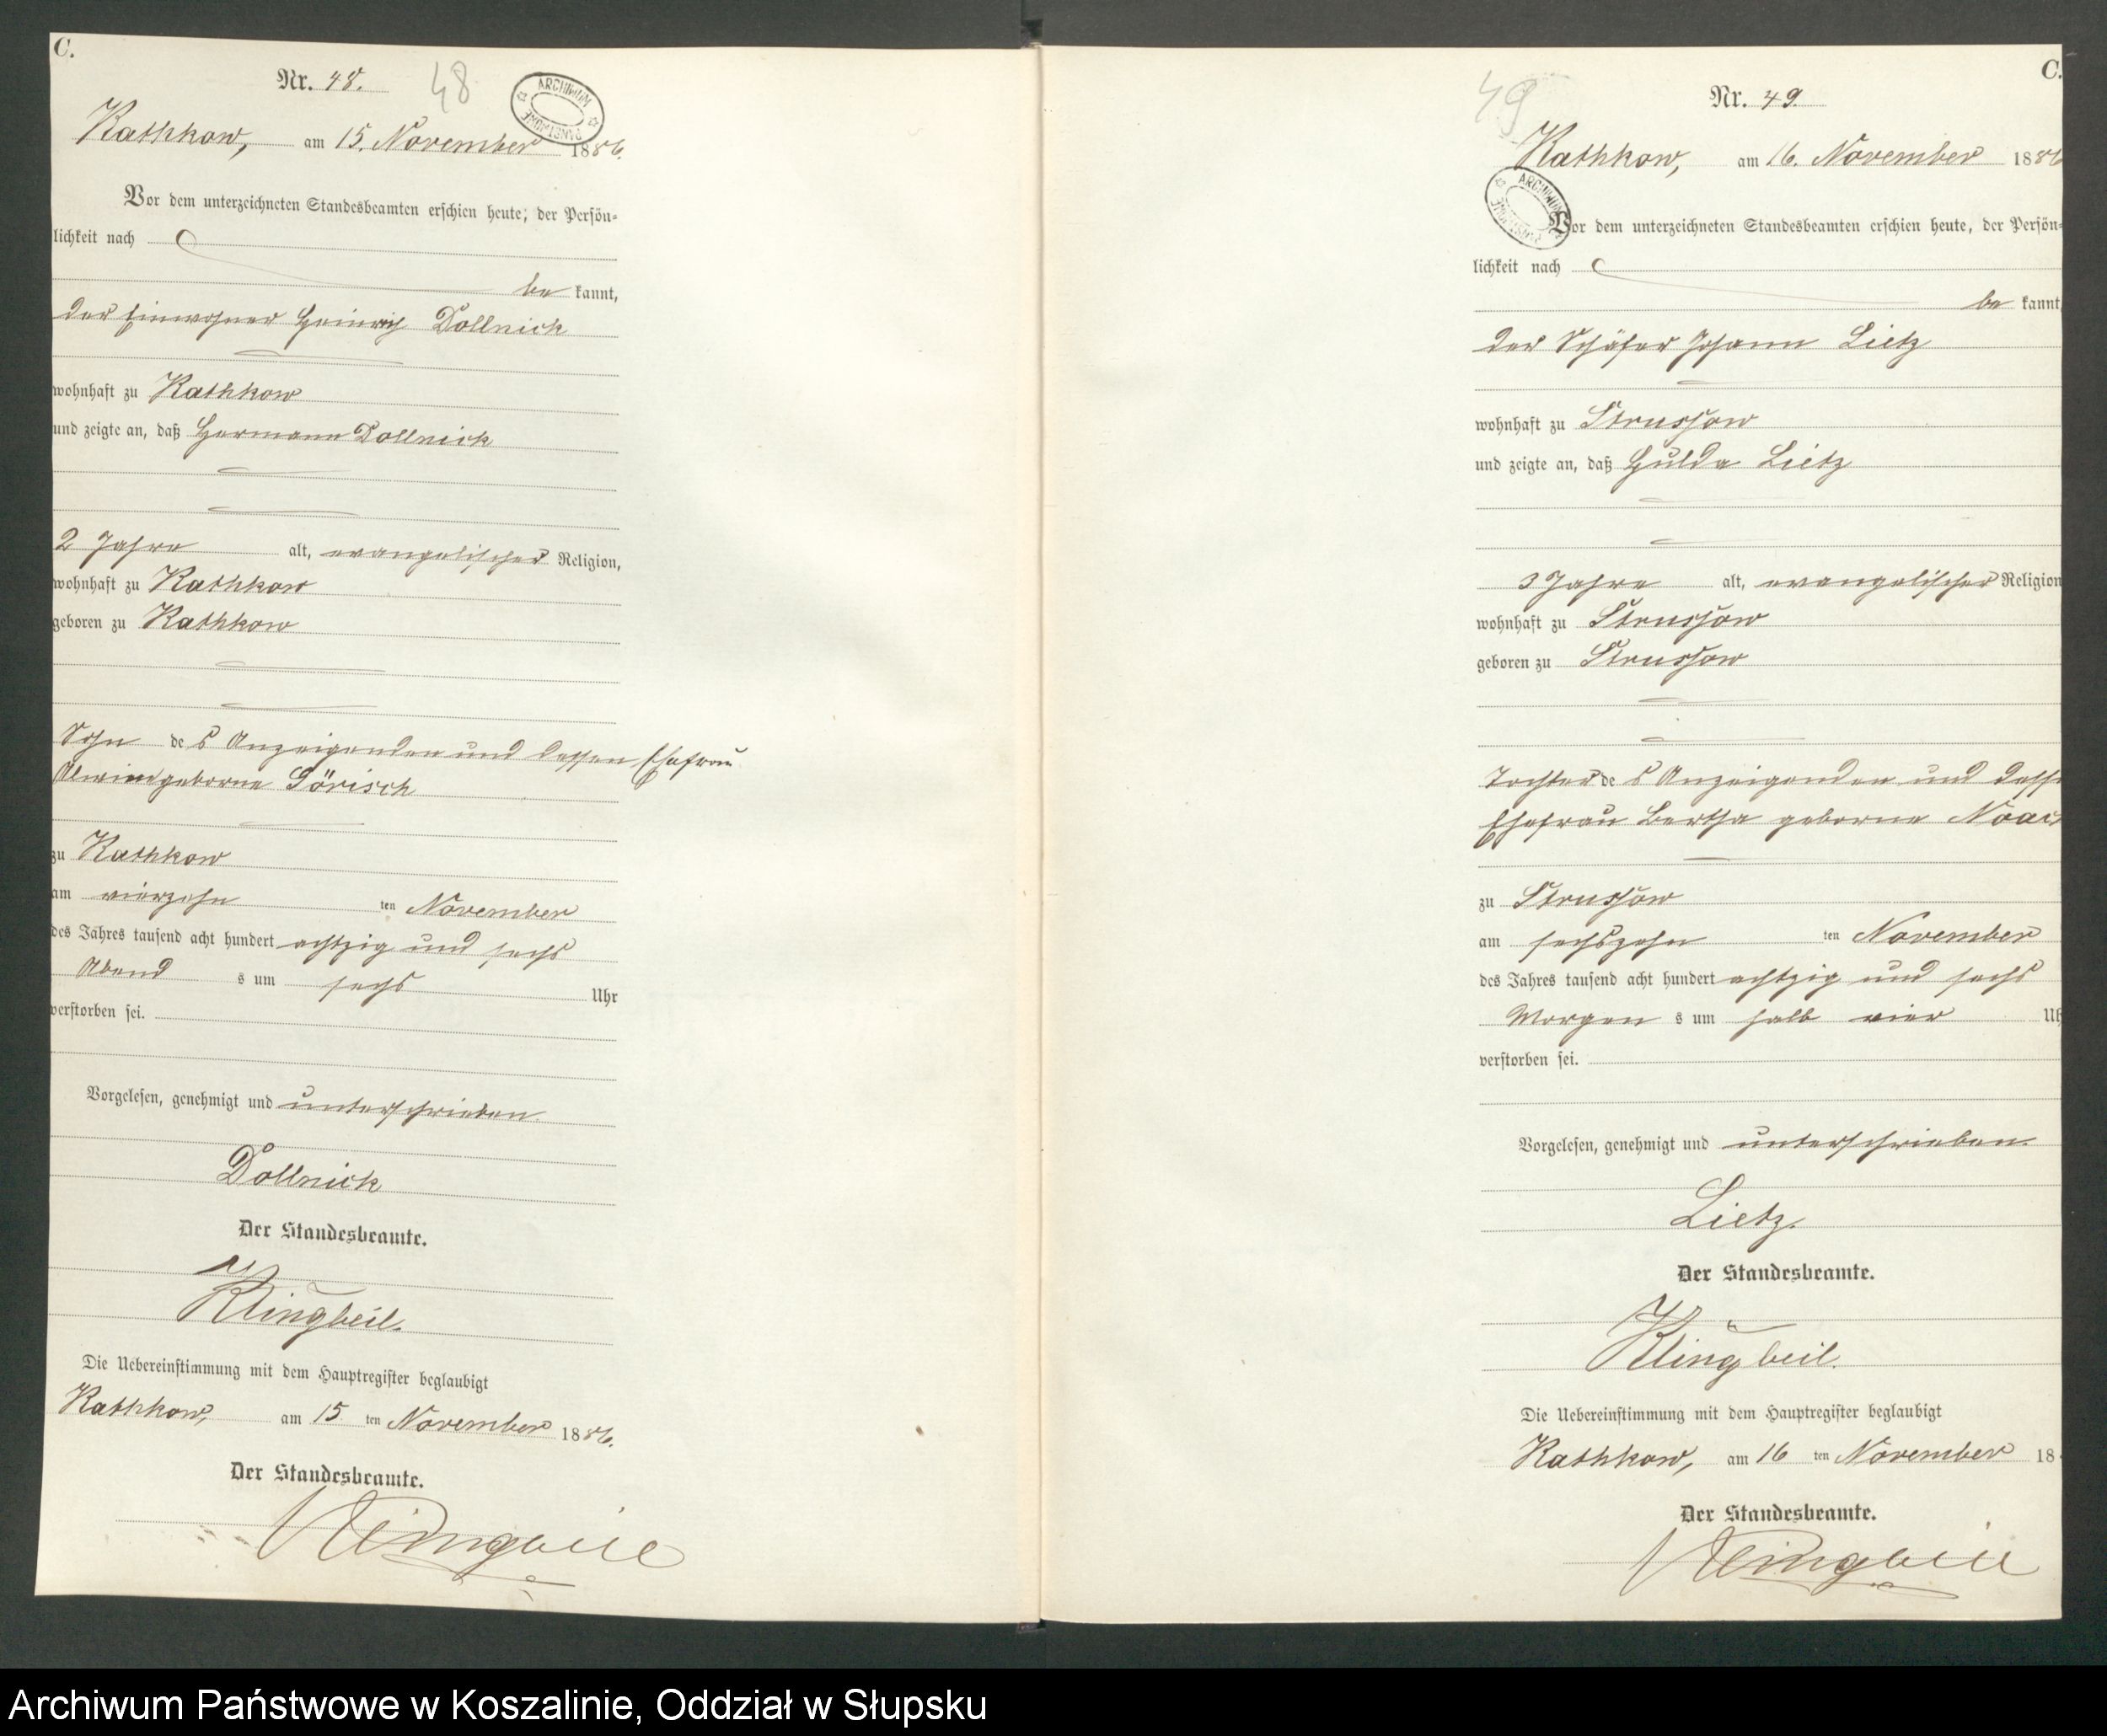 C.
Nr. 48.
48
ARCHIWUM PAŃSTWOWE
Rathkow, am 15. November 1886.
Vor dem unterzeichneten Standesbeamten erschien heute, der Persön-
lichkeit nach
be kannt,
der Einwohner Heinrich Dollnick
wohnhaft zu Rathkow
und zeigte an, daß Hermann Dollnick
2 Jahre alt, evangelischer Religion,
wohnhaft zu Rathkow
geboren zu Rathkow
Sohn des Anzeigenden und dessen Ehefrau
geborne Görisch
zu Rathkow
am vierzehn ten November
des Jahres tausend acht hundert achtzig und sechs
Abend s um sechs Uhr
verstorben sei.
Vorgelesen, genehmigt und unterschrieben.
Dollnick
Der Standesbeamte.
Klingbeil.
Die Uebereinstimmung mit dem Hauptregister beglaubigt
Rathkow, am 15 ten November 1886.
Der Standesbeamte.
Klingbeil
C.
Nr. 49.
49
ARCHIWUM PAŃSTWOWE
Rathkow, am 16. November 1886
Vor dem unterzeichneten Standesbeamten erschien heute, der Persön-
lichkeit nach
be kannt,
der Schäfer Johann Lietz
wohnhaft zu Strussow
und zeigte an, daß Hulda Lietz
3 Jahre alt, evangelischer Religion
wohnhaft zu Strussow
geboren zu Strussow
Tochter des Anzeigenden und desse
Ehefrau Bertha geborne Noac
zu Strussow
am sechszehn ten November
des Jahres tausend acht hundert achtzig und sechs
Morgen s um halb vier Uh
verstorben sei.
Vorgelesen, genehmigt und unterschrieben
Lietz.
Der Standesbeamte.
Klingbeil.
Die Uebereinstimmung mit dem Hauptregister beglaubigt
Rathkow, am 16 ten November 18
Der Standesbeamte.
Klingbeil
Archiwum Państwowe w Koszalinie, Oddział w Słupsku